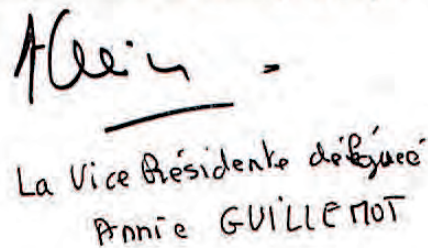 La Vice Présidente déléguée
Annie GUILLEMOT